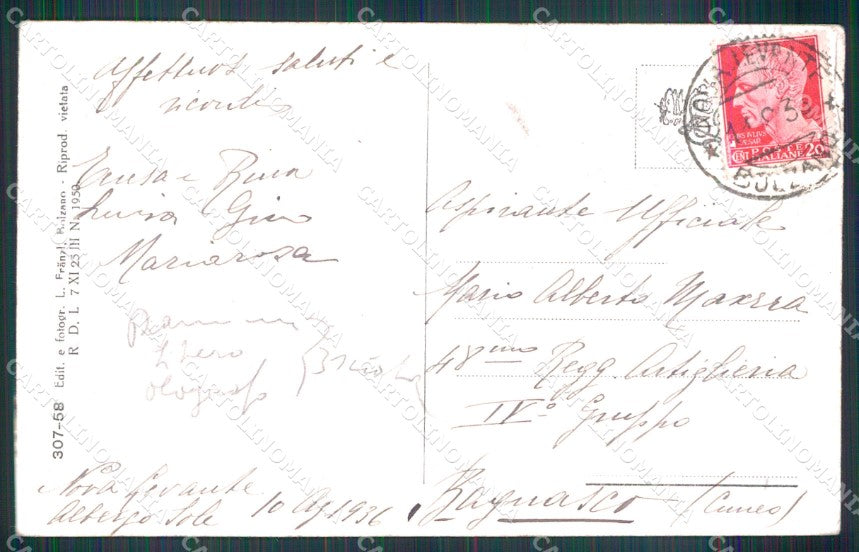 Affettuosi saluti e
ricordi
Luisa Gino
Mariarosa
libero
Nova Levante
Albergo Sole 10 Ag. 1936
307-58 Edit. e fotogr. L. Fränzl, Bolzano - Riprod. vietata
R D. L. 7 XI 25 III N. 1950
NOVA LEVANTE
BOLZANO
POSTE
ITALIANE
CENT 20
Aspirante Ufficiale
Mario Alberto
48mo Regg Artiglieria
IVo Gruppo
Bagnasco (Cuneo)
CARTOLINOMANIA